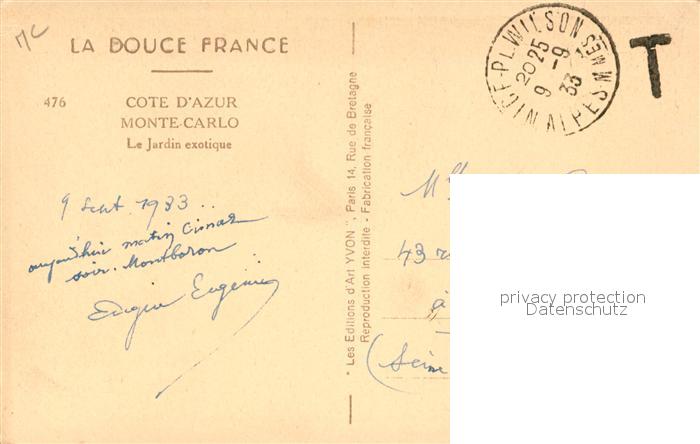 MC
LA DOUCE FRANCE
476
COTE D'AZUR
MONTE-CARLO
Le Jardin exotique
9 Sept 1933..
aujourd'hui matin Cimiez
soir. Montboron
Eugénie
* Les Editions d'Art YVON*, Paris 14, Rue de Bretagne
Reproduction interdite - Fabrication française
NICE-PL. WILSON
ALPES MMES
20 25
9 -9
33
T
Mlle
43 r
à
(Seine
privacy protection
Datenschutz